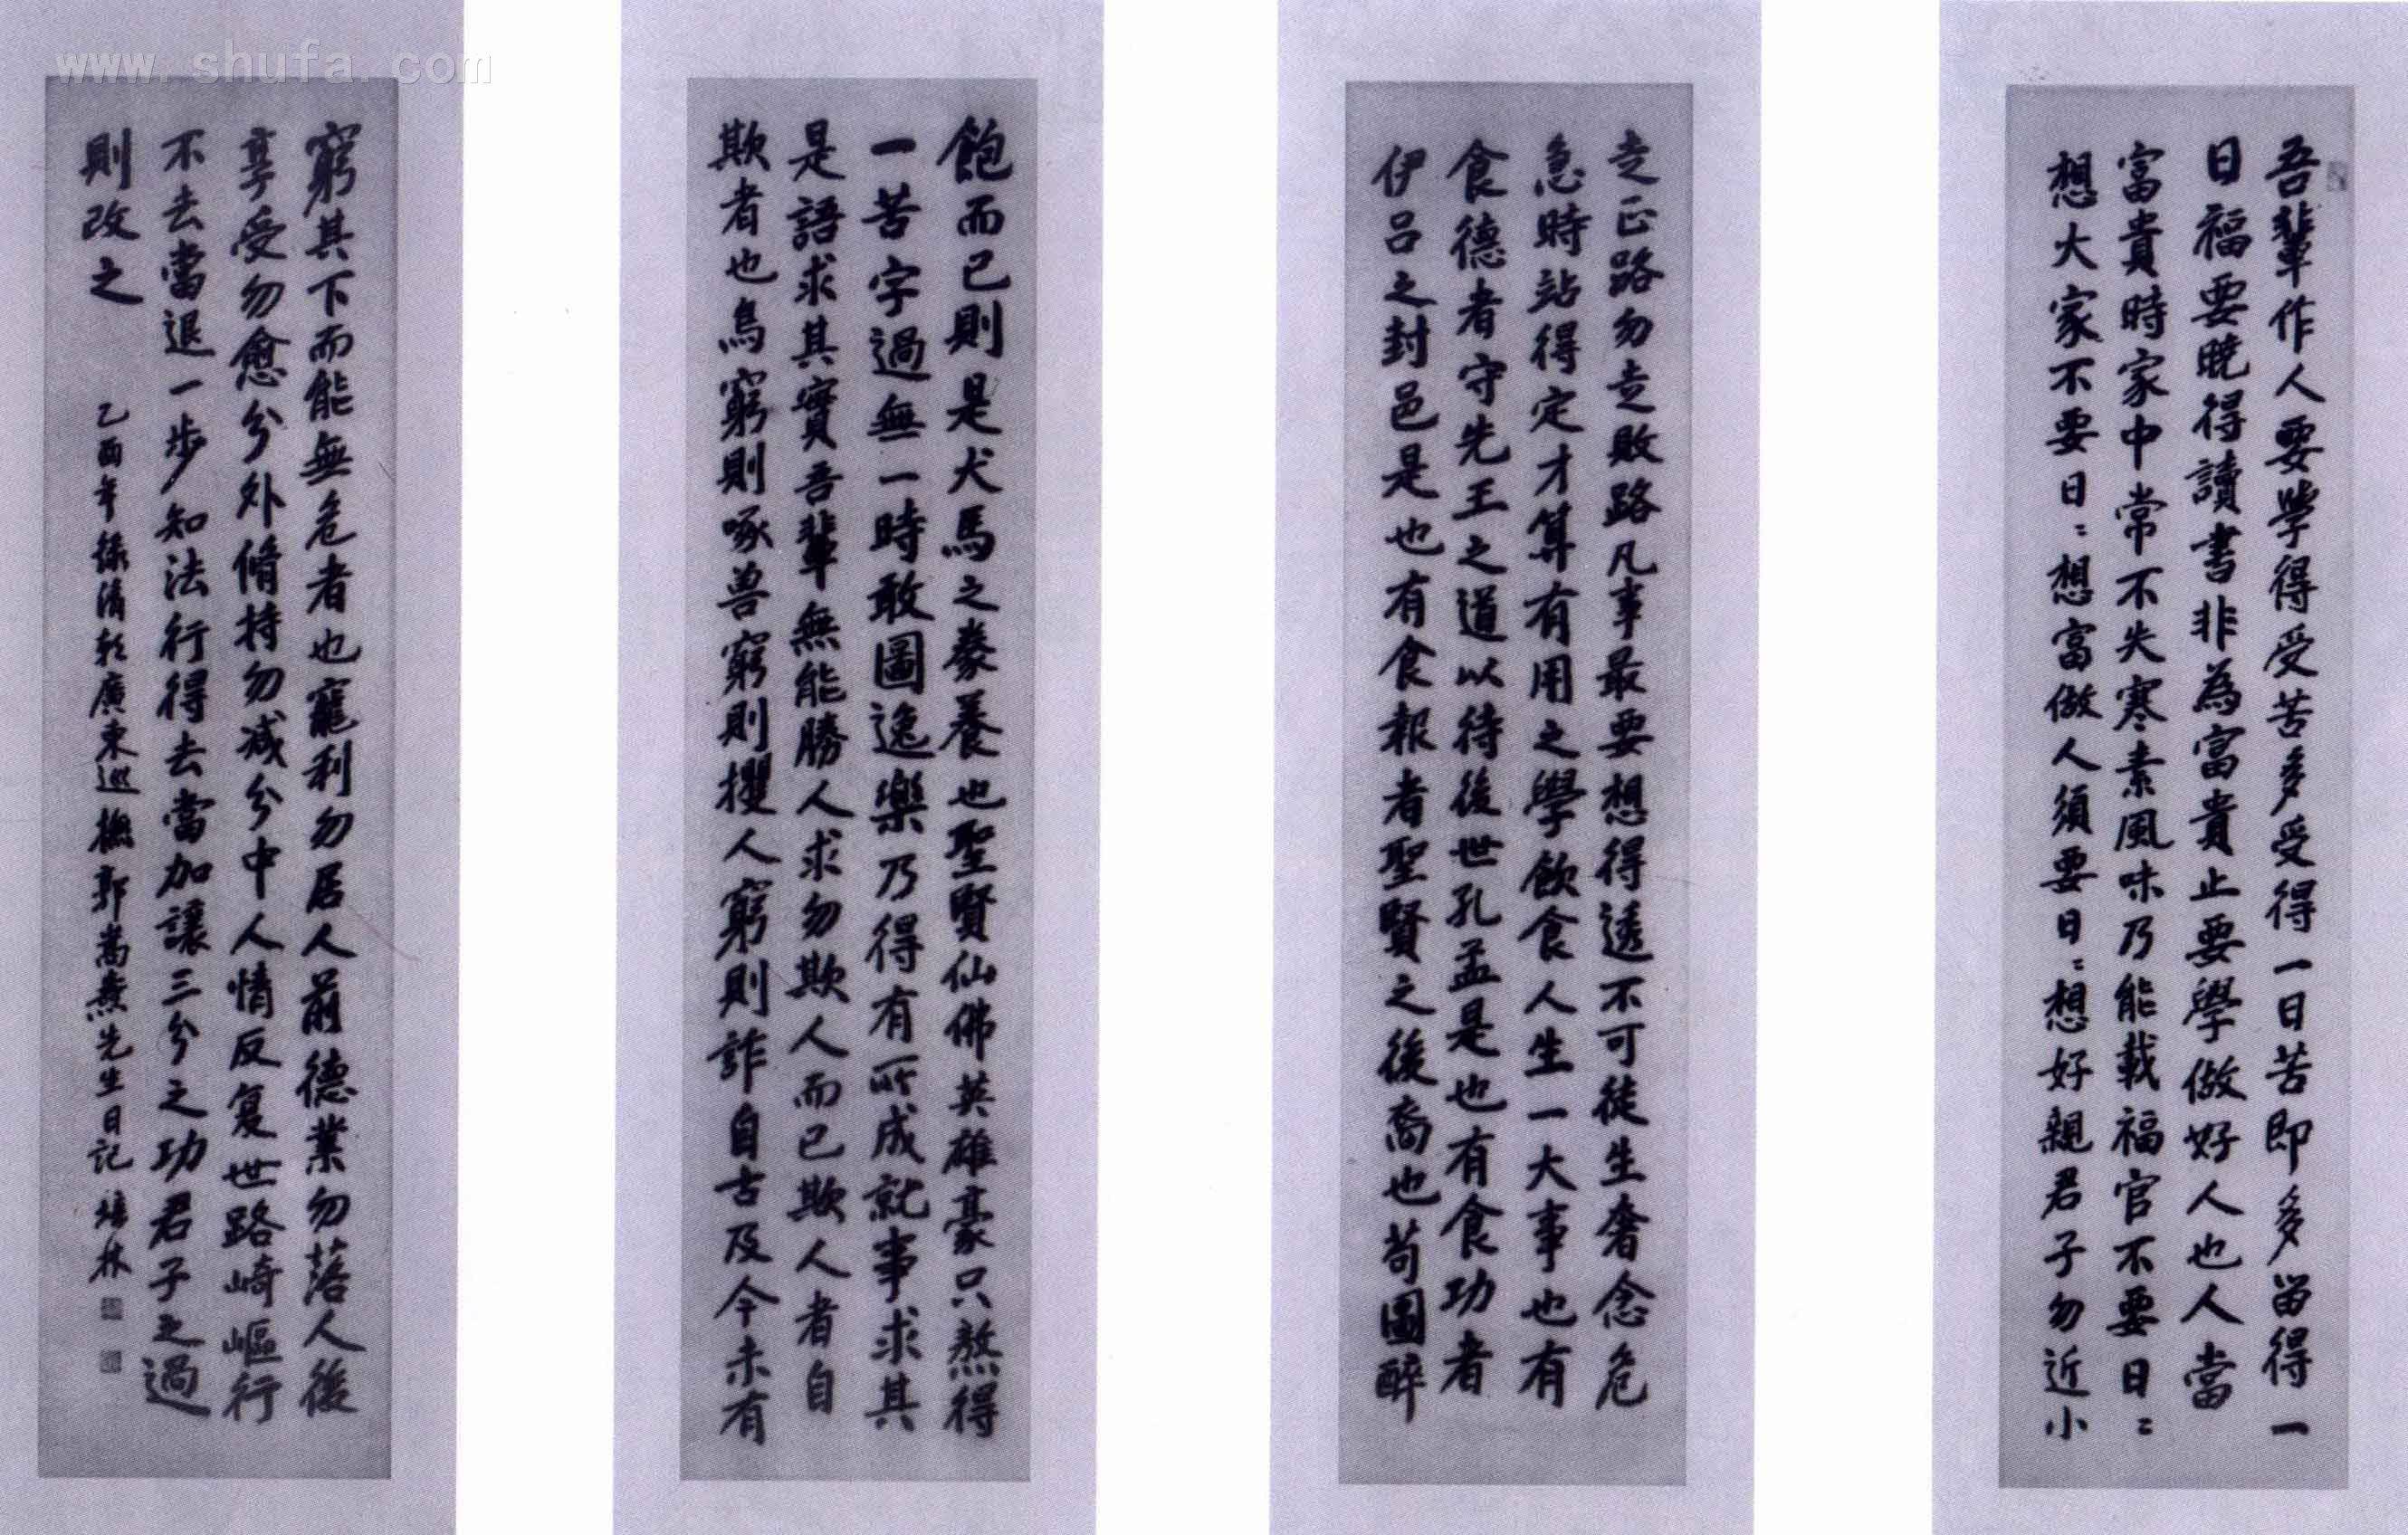 www.shufa.com
吾輩作人要學得受苦多受得一日苦即多留得一
日福要曉得讀書非為富貴止要學做好人也人當
富貴時家中常不失寒素風味乃能載福官不要日〻
想大家不要日〻想富做人須要日〻想好親君子勿近小
走正路勿走敗路凡事最要想得透不可徒生奢念危
急時站得定才算有用之學飲食人生一大事也有
食德者守先王之道以待後世孔孟是也有食功者
伊呂之封邑是也有食報者聖賢之後裔也苟圖醉
飽而已則是犬馬之豢養也聖賢仙佛英雄豪只熬得
一苦字過無一時敢圖逸樂乃得有所成就事求其
是語求其實吾輩無能勝人求勿欺人而已欺人者自
欺者也鳥窮則啄兽窮則攫人窮則詐自古及今未有
窮其下而能無危者也寵利勿居人前德業勿落人後
享受勿愈分外脩持勿減分中人情反复世路崎嶇行
不去當退一步知法行得去當加讓三分之功君子之過
則改之
乙酉年錄清乾廣東巡撫郭嵩燾先生日記 培林